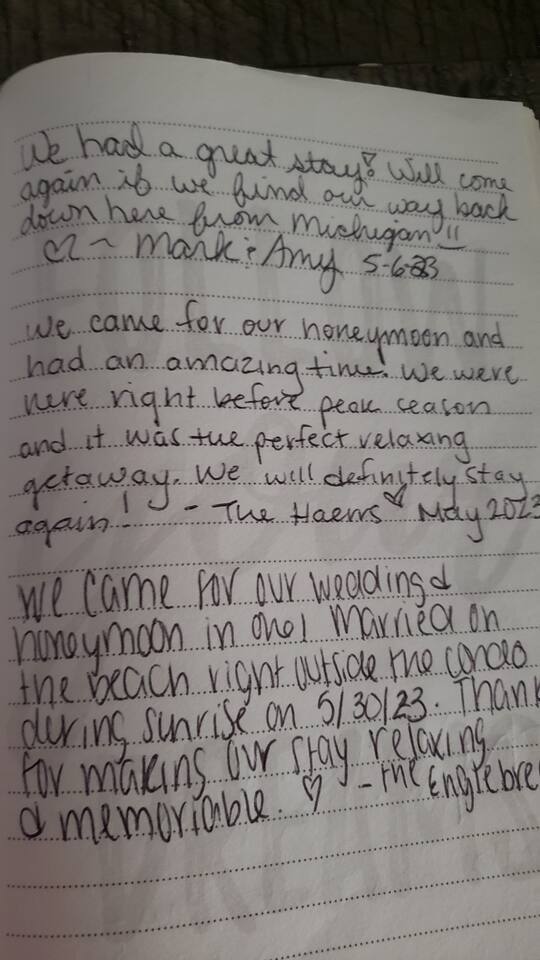 We had a great stay! Will come
again if we find our way back
down here from Michigan!!
♡ ~ Mark & Amy 5-6-23
We came for our honeymoon and
had an amazing time. We were
here right before peak season
and it was the perfect relaxing
getaway. We will definitely stay
again! - The Haerrs ♡ May 2023
We came for our wedding &
honeymoon in one! Married on
the beach right outside the condo
during sunrise on 5/30/23. Thank
for making our stay relaxing
& memoriable. ♡ - The Englebre